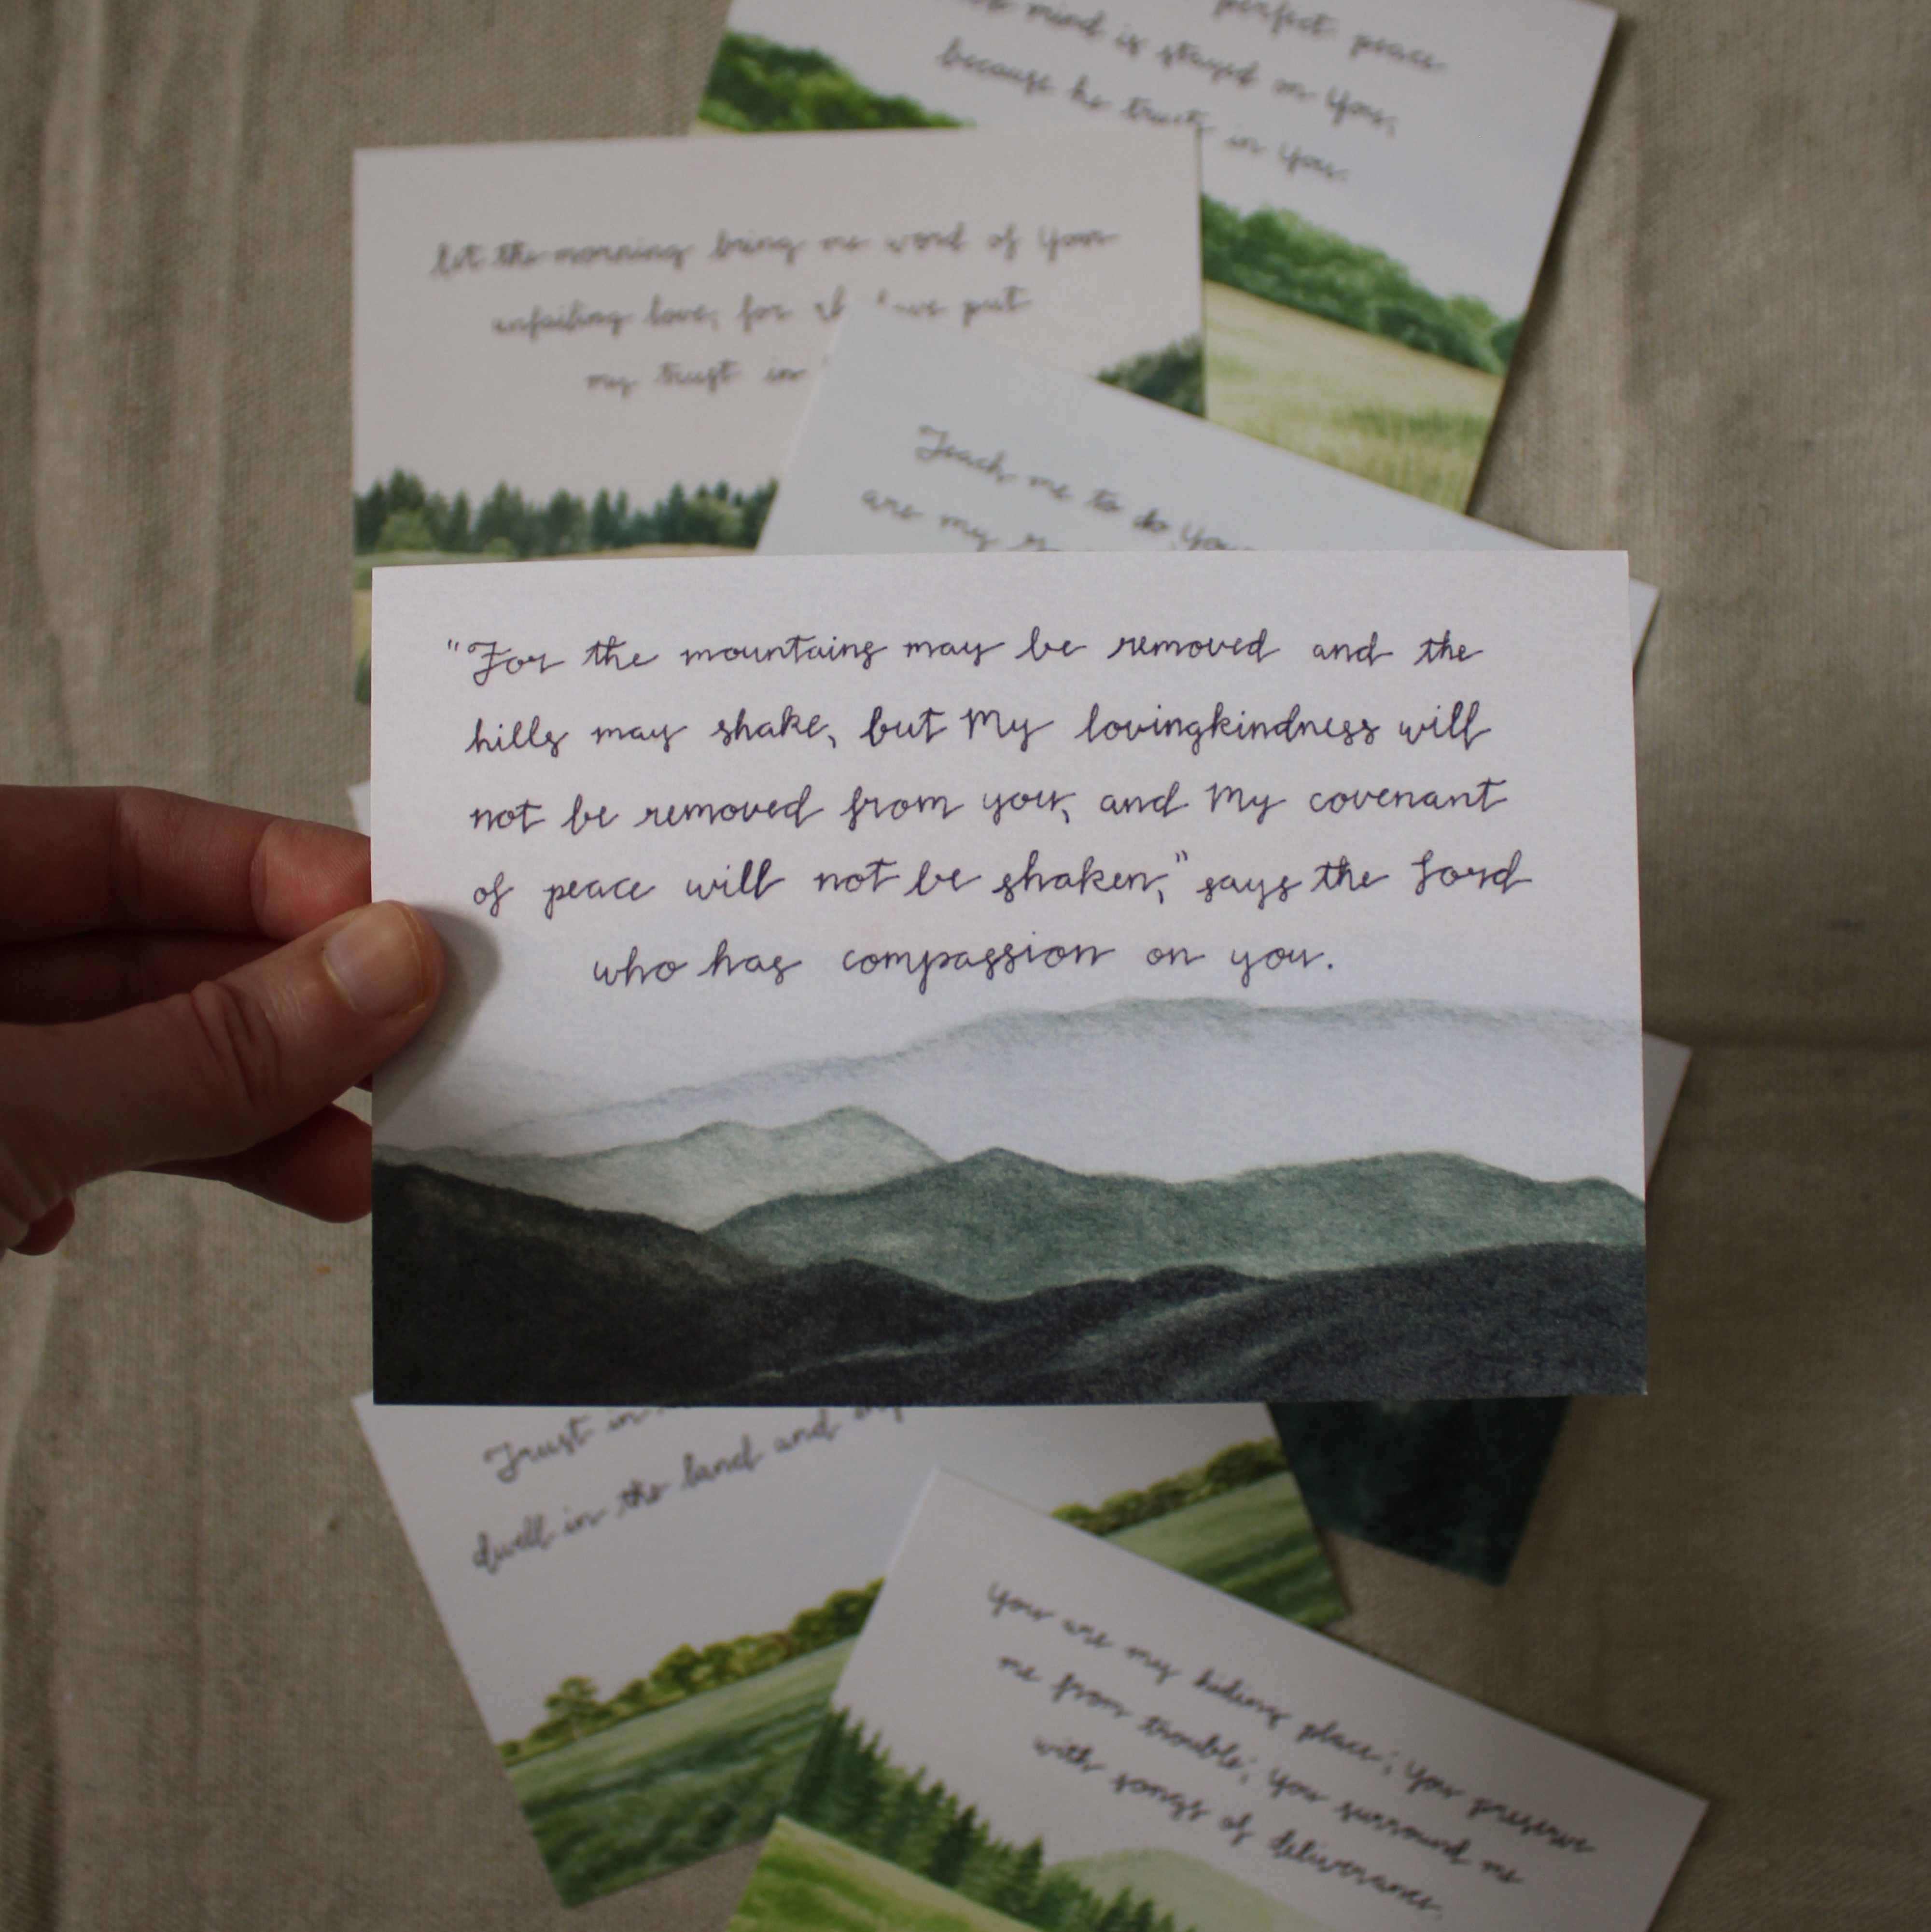 perfect peace
mind is stayed on You,
because he trusts in You.
let the morning bring me word of Your
unfailing love, for put
my trust in
Teach me to do
are my
"For the mountains may be removed and the
hills may shake, but My lovingkindness will
not be removed from you, and My covenant
of peace will not be shaken," says the Lord
who has compassion on you.
Trust in
dwell in the land and
You are my hiding place; You preserve
me from trouble; You surround me
with songs of deliverance.